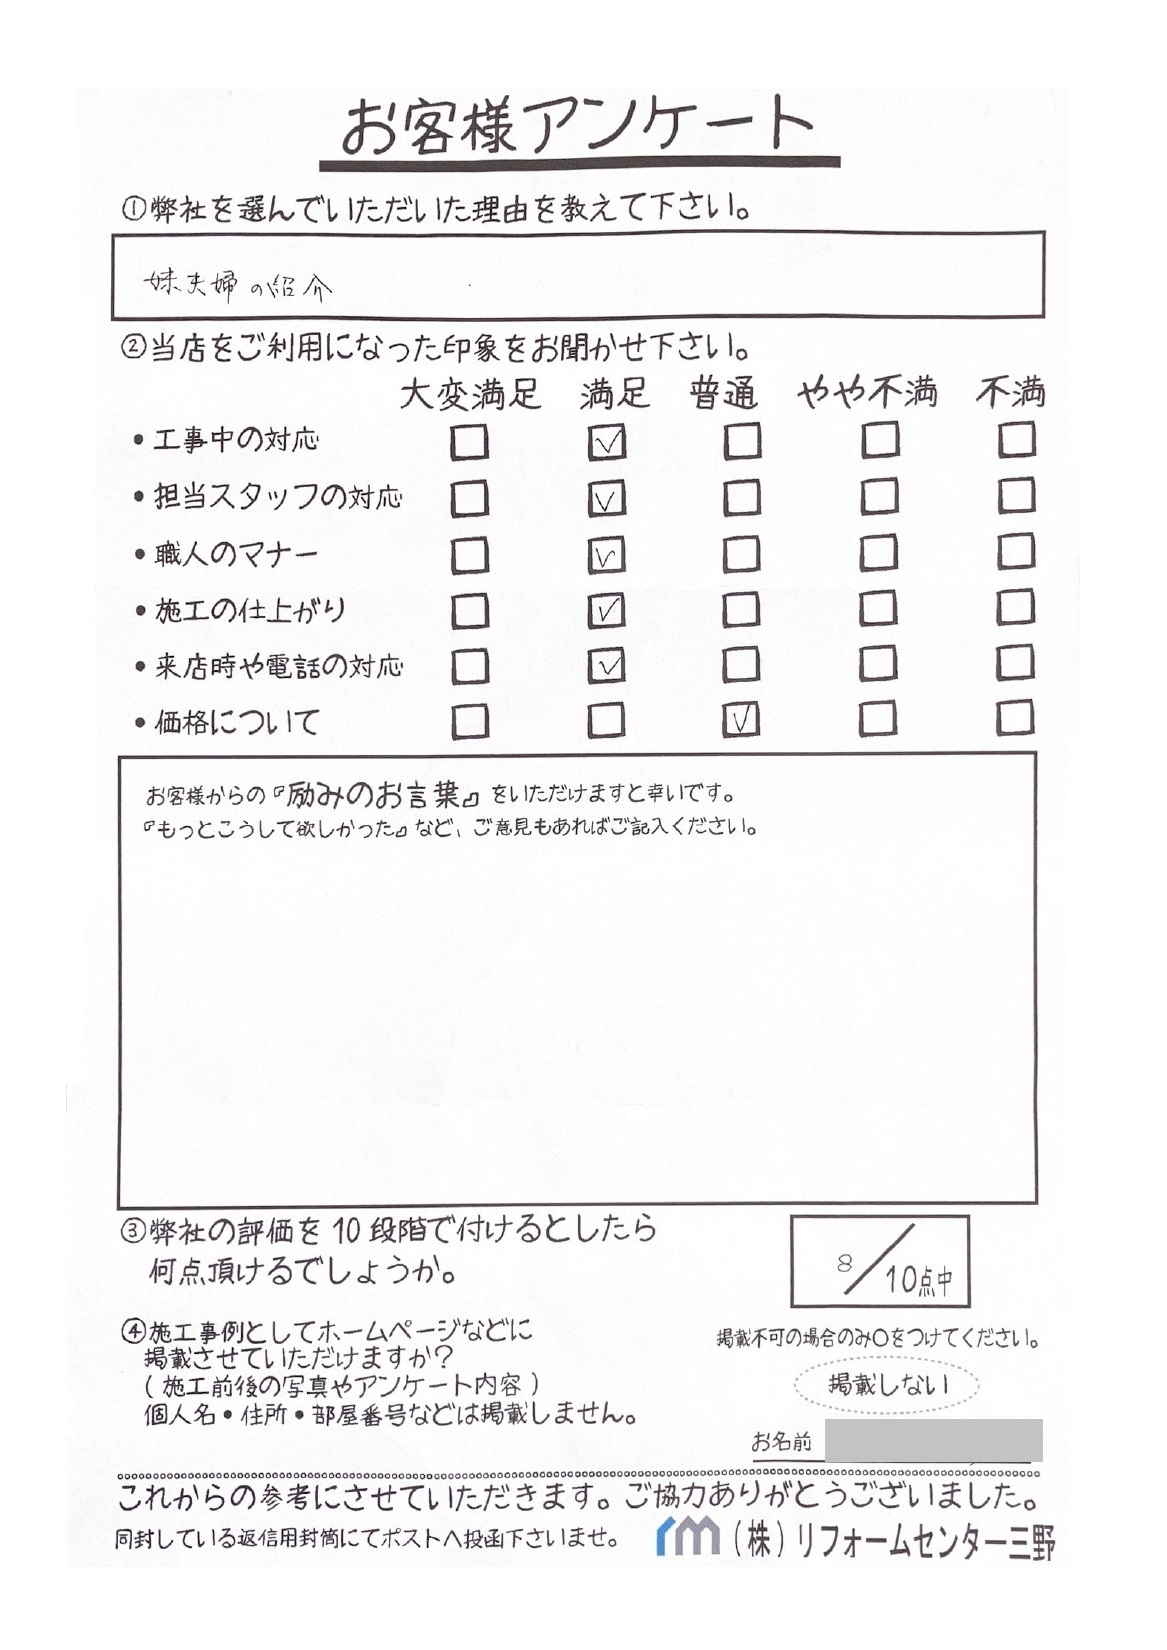 お客様アンケート
①弊社を選んでいただいた理由を教えて下さい。
妹夫婦の紹介
②当店をご利用になった印象をお聞かせ下さい。
大変満足 満足 普通 やや不満 不満
•工事中の対応 □ ☑ □ □ □
•担当スタッフの対応 □ ☑ □ □ □
•職人のマナー □ ☑ □ □ □
•施工の仕上がり □ ☑ □ □ □
•来店時や電話の対応 □ ☑ □ □ □
•価格について □ □ ☑ □ □
お客様からの『励みのお言葉』をいただけますと幸いです。
『もっとこうして欲しかった』など、ご意見もあればご記入ください。
③弊社の評価を10段階で付けるとしたら
何点頂けるでしょうか。
8/10点中
④施工事例としてホームページなどに
掲載させていただけますか?
(施工前後の写真やアンケート内容)
個人名•住所•部屋番号などは掲載しません。
掲載不可の場合のみ○をつけてください。
掲載しない
お名前
これからの参考にさせていただきます。ご協力ありがとうございました。
同封している返信用封筒にてポストへ投函下さいませ。
rm(株)リフォームセンター三野